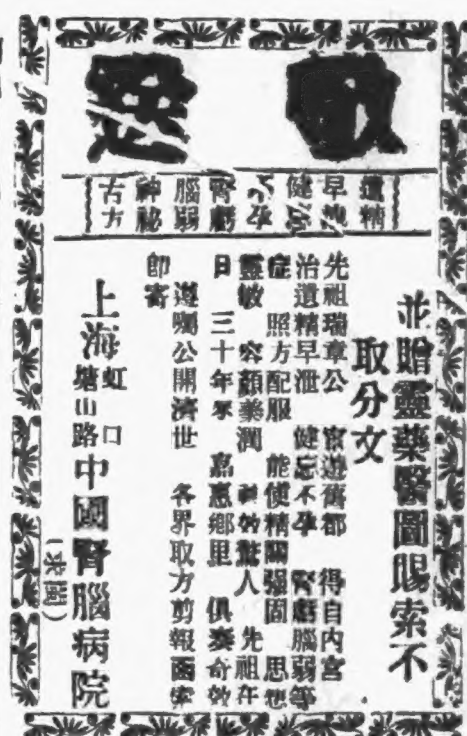 敬
遺精
早洩
健忘
不孕
腎虧
腦弱
神祕
古方
並贈靈藥醫圖賜索不
取分文
先祖瑞章公 宦遊舊都 得自內宮
治遺精早泄 健忘不孕 腎虧腦弱等
症 照方配服 能使精關强固 思想
靈敏 容顏藥潤 神效驚人 先祖在
日 三十年來 嘉惠鄉里 俱奏奇效
遵囑公開濟世 各界取方剪報函索
卽寄
上海虹口塘山路中國腎腦病院